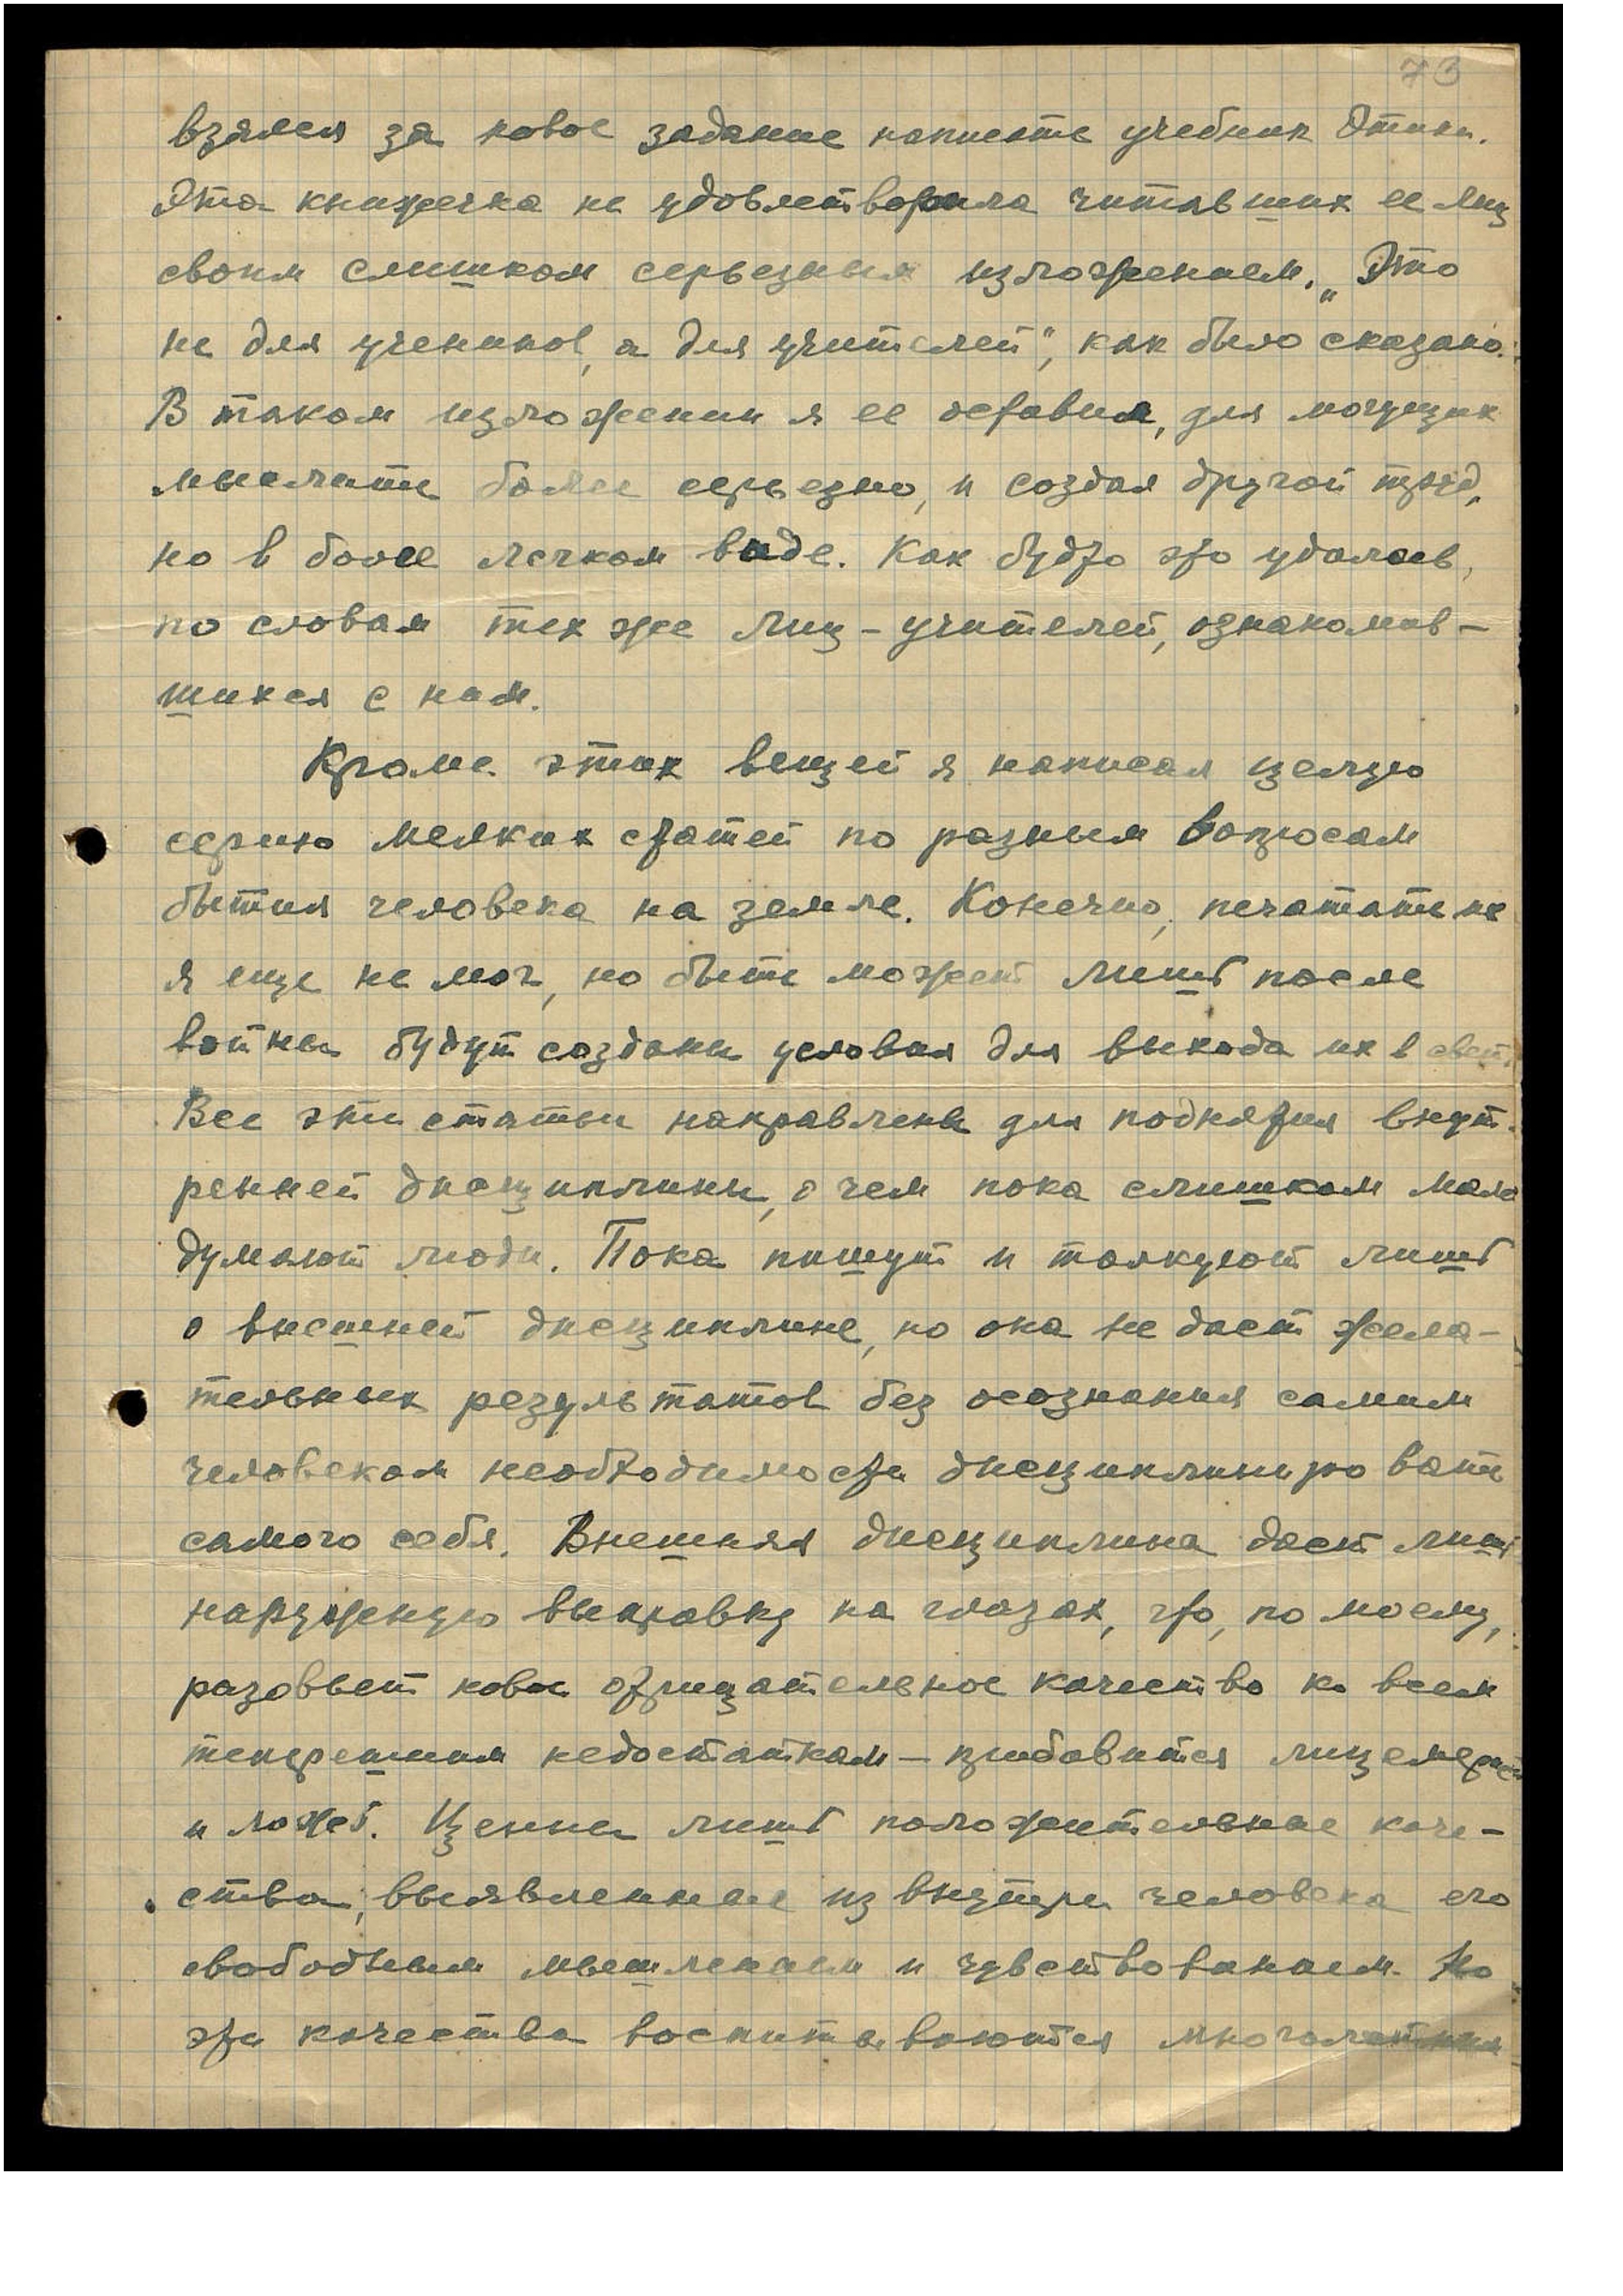 73
взялся за новое задание написать учебник Этики.
Эта книжечка не удовлетворила читавших ее лиц
своим слишком серьезным изложением. „Это
не для учеников, а для учителей", как было сказано.
В таком изложении я ее оставил, для могущих
мыслить более серьезно, и создал другой труд,
но в более легком виде. Как будто это удалось,
по словам тех же лиц – учителей, ознакомив-
шихся с ним.
Кроме этих вещей я написал целую
серию мелких статей по разным вопросам
бытия человека на земле. Конечно, печатать их
я еще не мог, но быть может лишь после
войны будут созданы условия для выхода их в свет.
Все эти статьи направлены для поднятия внут-
ренней дисциплины, о чем пока слишком мало
думают люди. Пока пишут и толкуют лишь
о внешней дисциплине, но она не даст жела-
тельных результатов без осознания самим
человеком необходимости дисциплинировать
самого себя. Внешняя дисциплина даст лишь
наружную выправку на глазах, что, по моему,
разовьет новое отрицательное качество ко всем
теперешним недостаткам – прибавится лицемерие
и ложь. Ценны лишь положительные каче-
ства, выявленные из внутри человека его
свободным мышлением и чувствованием. Но
эти качества воспитываются многолетним